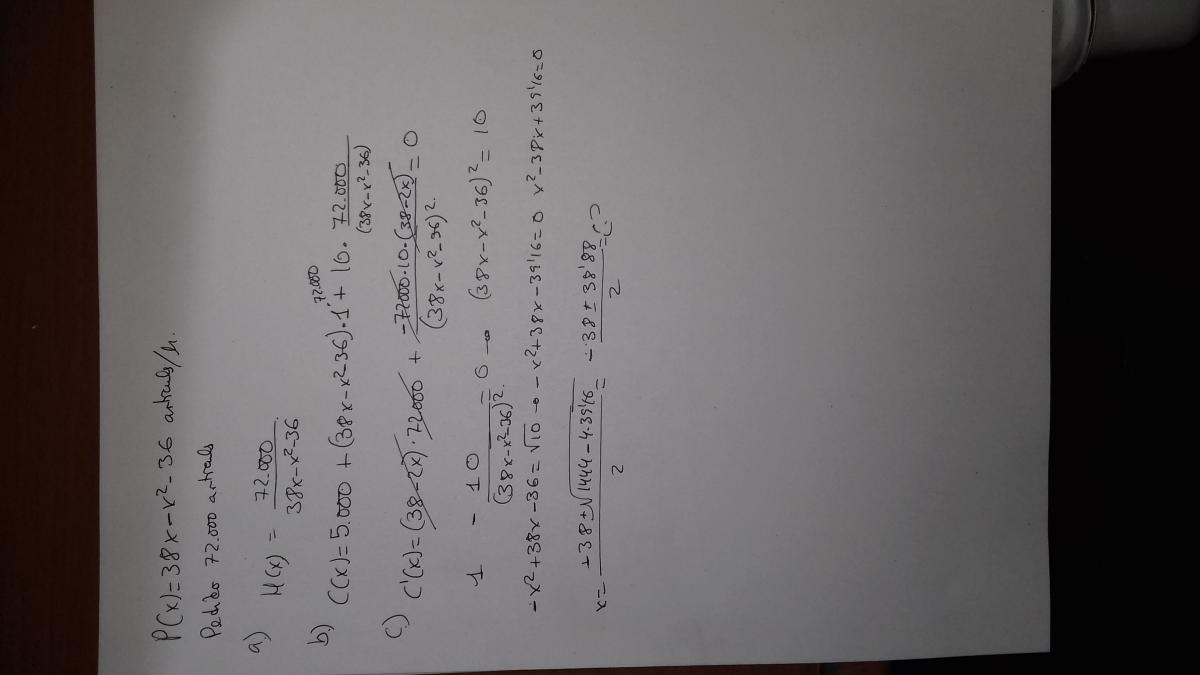 P(x)=38x-x²-36 articuls/h.
Pedido 72.000 articuls
a) H(x) = 72.000 / 38x-x²-36
b) C(x)=5.000+(38x-x²-36)·1'72.000+10·72.000/(38x-x²-36)
c) C'(x)=(38-2x)·72000+-72000·10·(38-2x)/(38x-x²-36)²=0
1 - 10/(38x-x²-36)²=0→(38x-x²-36)²=10
-x²+38x-36=√10→-x²+38x-39'16=0 x²-38x+39'16=0
x=+38±√1444-4·39'16/2=-38±38'88/2=